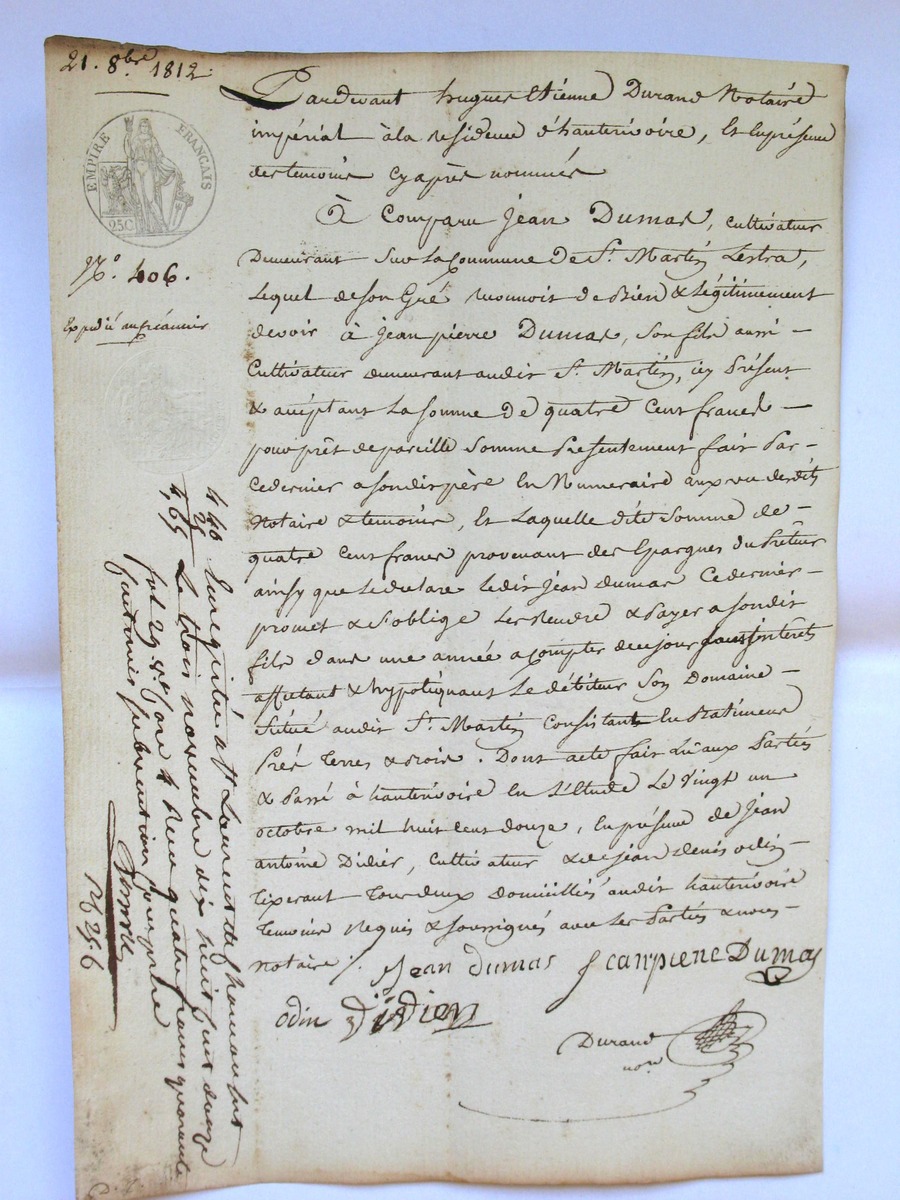 21. 8bre 1812.
EMPIRE FRANÇAIS
25C
N.° 406.
Expedié au créancier
Pardevant hugues Etienne Durand Notaire
impérial à la residence d'hauterivoire, Et En présence
des temoins Cy après nommés
à Comparu Jean Dumas, Cultivateur
Demeurant Sur La Commune de St. Martin Lestra,
Lequel de Son Gré reconnois de Bien & Légitimement
devoir à Jean pierre Dumas, Son fils aussi
Cultivateur demeurant audit St. Martin, icy Présent
& acceptant La Somme De quatre Cent francs
pour prêt de pareille Somme Présentement fait Par
Ce dernier a Sondit père En Numeraire aux vu desdits
Notaire & temoins, Et Laquelle dite Somme de
quatre Cent francs provenant des Epargnes du Prêteur
ainsy que Le declare Ledit Jean dumas Ce dernier
promet & S'oblige Les Rendre & Payer a Sondit
fils dans une année a Compter de ce jour sans intérêts
affectant & hypotiquant Le débiteur Son Domaine
Situé audit St. Martin Consistant En Batimens
Prés Terres & Bois. Dont acte fait Lu aux Parties
& Passé à hauterivoire En L'Etude Le Vingt un
octobre mil huit Cent douze, En présence de Jean
antoine Didier, Cultivateur & de Jean denis odin
Tixerant Tous deux domiciliés audit hauterivoire
Temoins Requis & Soussignés avec Les Parties & nous
notaire ./.
Jean Dumas
Jean piene Dumas
odin
Didier
Durand
nore
4 40
25
4,65
Enregitré à St Laurent de chamousset
Le trois novembre dix huit cent douze
fol 29 Vo Case 4 Recu quatre francs quarante
Centimes subvention comprise
N 256